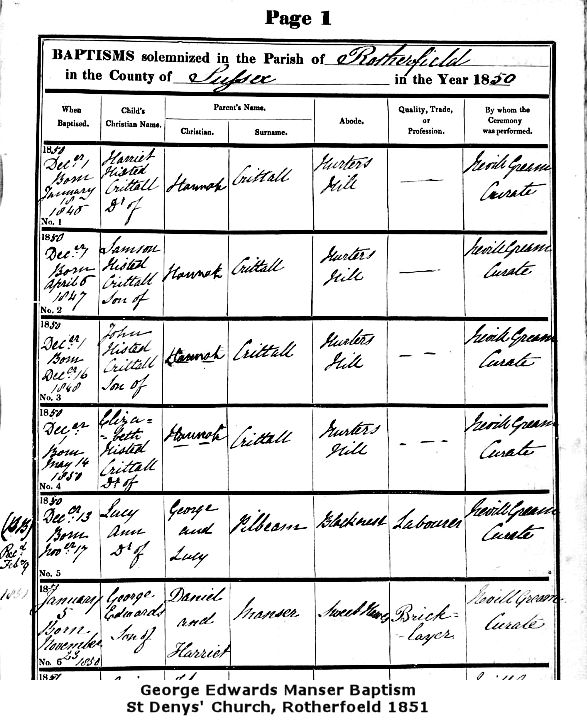 Page 1
BAPTISMS solemnized in the Parish of Rotherfield
in the County of Sussex in the Year 1850
When Baptised. Child's Christian Name. Parent's Name. Christian. Surname. Abode. Quality, Trade, or Profession. By whom the Ceremony was performed.
1850
Decer 1
Born
January
18th
1845
No. 1
Harriet
Histed
Crittall
Dr of
Hannah
Crittall
Hurters
Hill
—
Nevill Gream
Curate
1850
Decer 1
Born
April 5
1847
No. 2
Samson
Histed
Crittall
Son of
Hannah
Crittall
Hurters
Hill
—
Nevill Gream
Curate
1850
Decer 1
Born
Decer 16
1848
No. 3
John
Histed
Crittall
Son of
Hannah
Crittall
Hurters
Hill
- -
Nevill Gream
Curate
1850
Decer
1
Born
May 14
1850
No. 4
Eliza=
-beth
Histed
Crittall
Dr of
Hannah
Crittall
Hurters
Hill
- - -
Nevill Gream
Curate
1850
Decer 13
Born
Novr 17
No. 5
Lucy
Ann
Dr of
George
and
Lucy
Pilbeam
Blacknest
Labourer
Nevill Gream
Curate
January
5
Born
November
23 1850
No. 6
George
Edwards
Son of
Daniel
and
Harriet
Manser
Brick-
-layer
Nevill Gream
Curate
George Edwards Manser Baptism
St Denys' Church, Rotherfoeld 1851